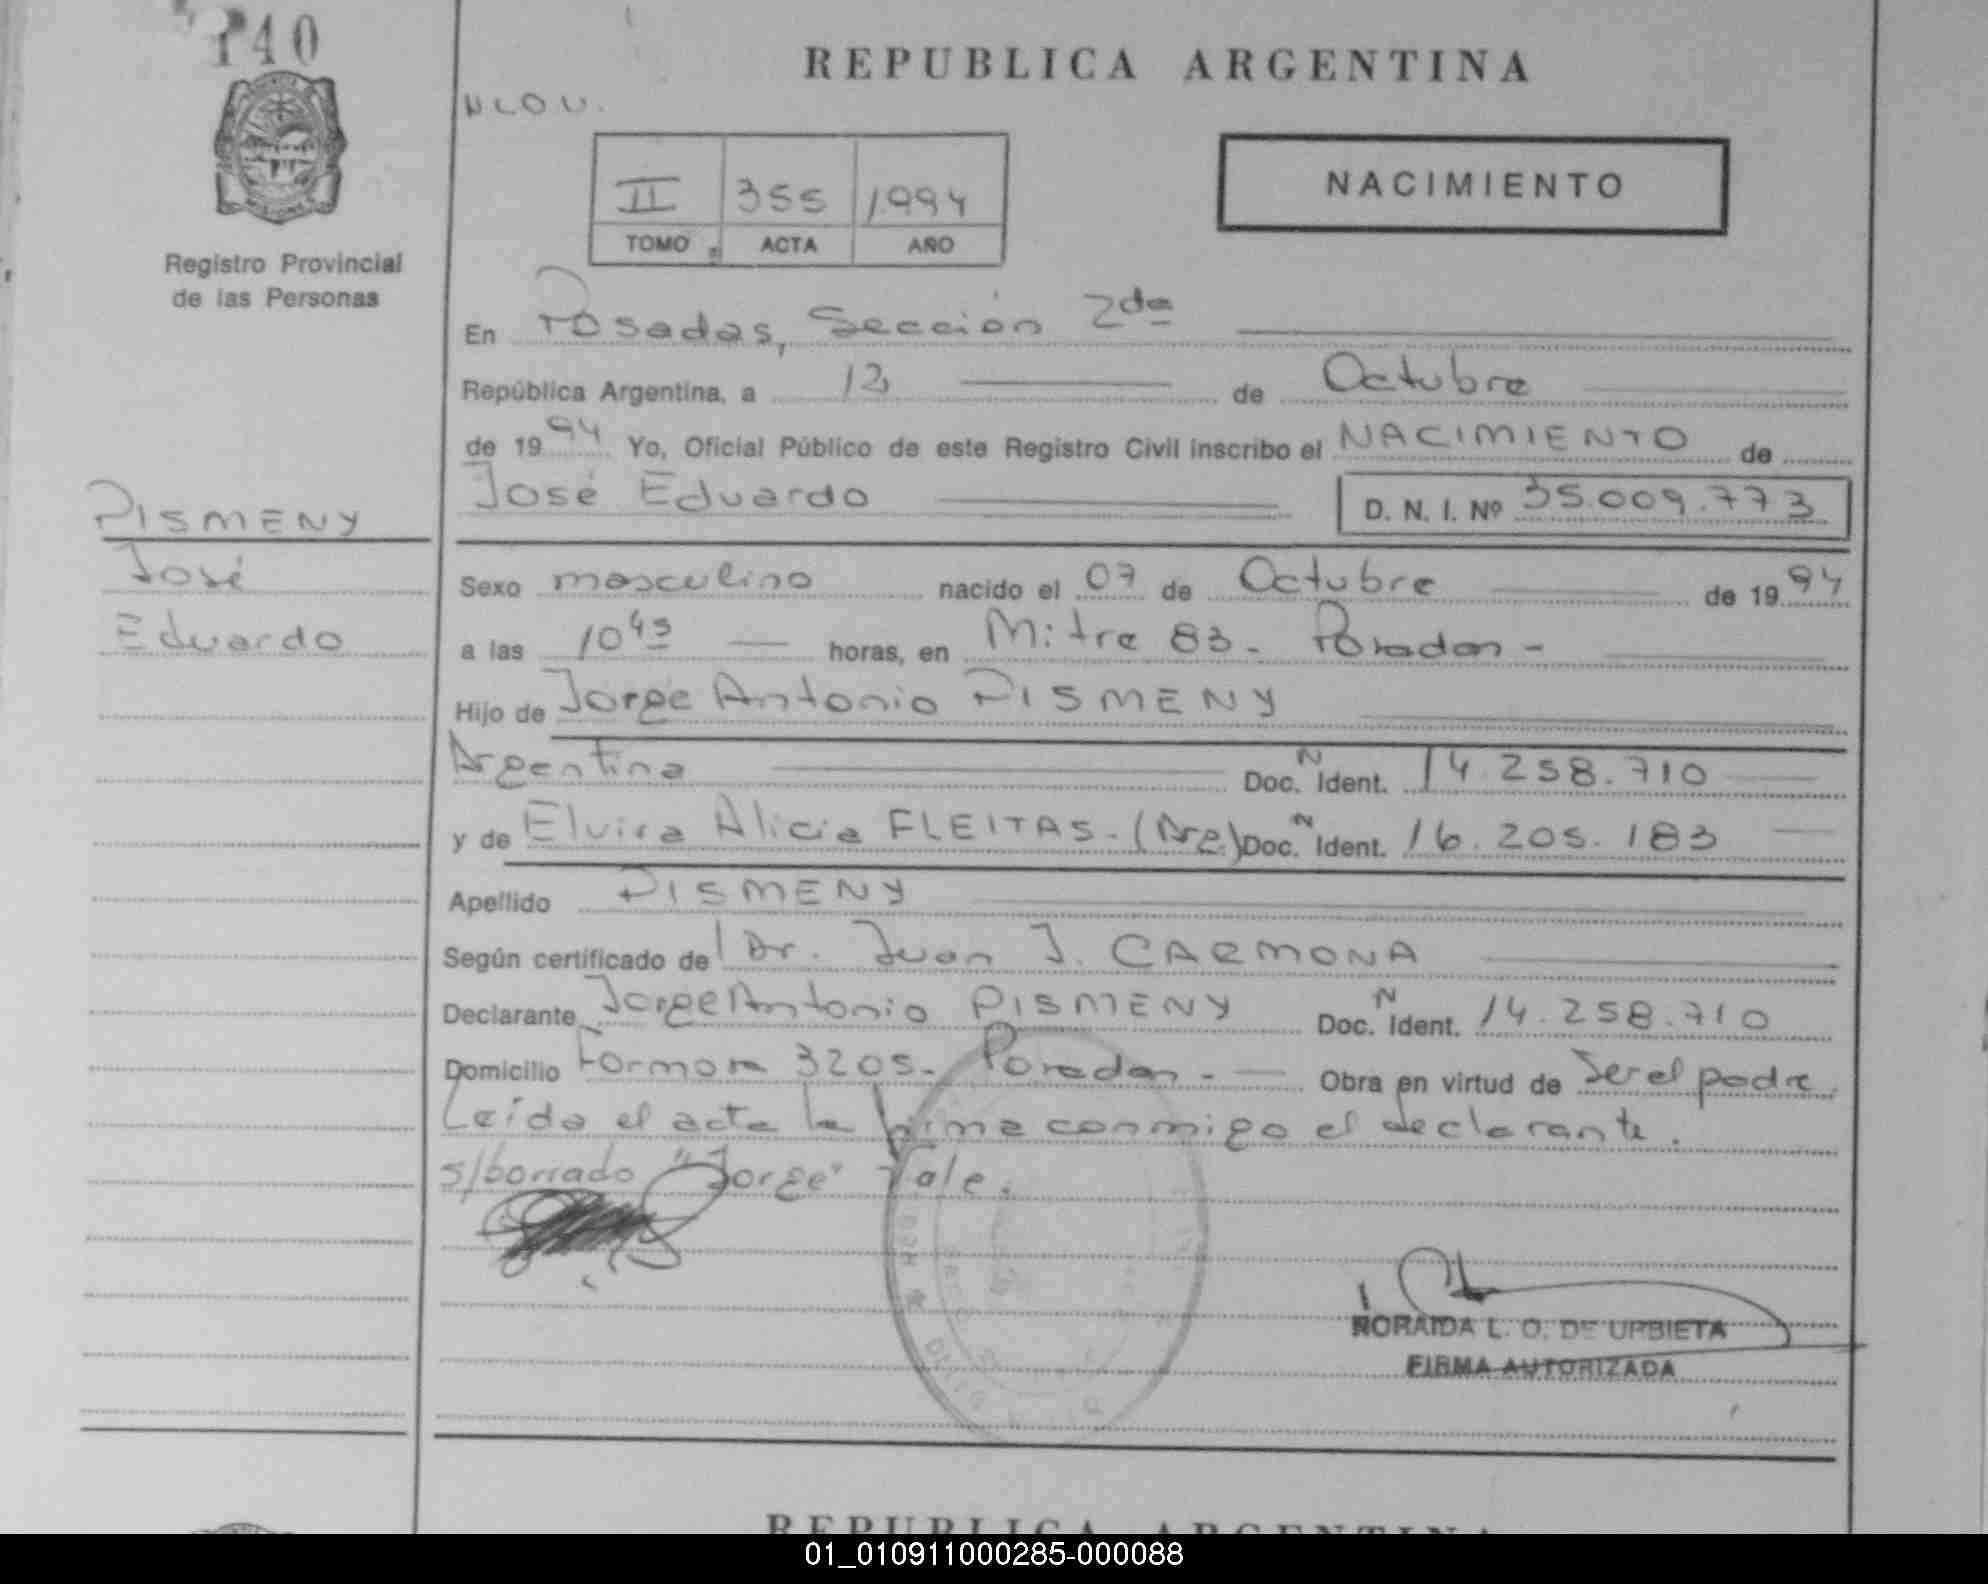 140
REPUBLICA ARGENTINA
II 355 1994
TOMO ACTA AÑO
NACIMIENTO
Registro Provincial
de las Personas
En Posadas, Sección 2da
República Argentina, a 12 de Octubre
de 1994 Yo, Oficial Público de este Registro Civil inscribo el NACIMIENTO de
José Eduardo D. N. I. Nº 35.009.773
PISMENY
José
Eduardo
Sexo masculino nacido el 07 de Octubre de 1994
a las 10 45 horas, en Mitre 83. Posadas -
Hijo de Jorge Antonio PISMENY
Argentina Doc. N Ident. 14.258.710
y de Elvira Alicia FLEITAS. (Arg.) Doc. N Ident. 16.205.183
Apellido PISMENY
Según certificado de Dr. Juan J. CARMONA
Declarante Jorge Antonio PISMENY Doc. N Ident. 14.258.710
Domicilio Formosa 3205. Posadas. - Obra en virtud de Ser el padre.
Leída el acta la firma conmigo el declarante.
s/borrado "Jorge" Vale.
NORAIDA L. O. DE URBIETA
FIRMA AUTORIZADA
REPUBLICA ARGENTINA
01_010911000285-000088